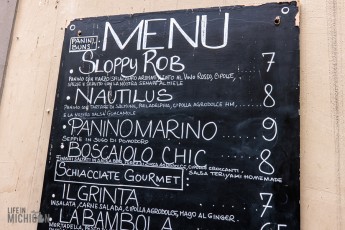 PANINI BUNS:
MENU
• SLOPPY ROB 7
PANINO CON MANZO SPEZIATO AROMATIZZATO AL VINO ROSSO, CIPOLLE,
• NAUTILUS 8
PANINO CON TARTARE DI SALMONE, PHILADELPHIA, CIPOLLA AGRODOLCE HM,
E LA NOSTRA SALSA GUACAMOLE
• PANINO MARINO 9
SEPPIE IN SUGO DI POMODORO
• BOSCAIOLO CHIC 8
SALSA TERIYAKI HOMEMADE
SCHIACCIATE GOURMET:
• IL GRINTA 7
INSALATA, CARNE SALADA, CIPOLLA AGRODOLCE, MAYO AL GINGER
• LA BAMBOLA
MORTADELLA,
LIFE IN
MICHIGAN